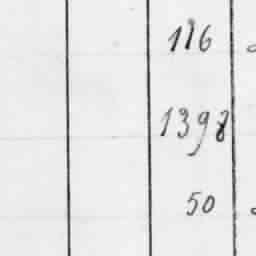 116
1398
50